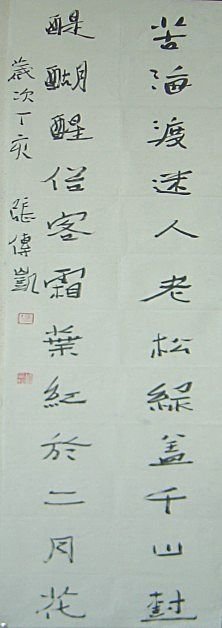 苦海渡迷人老松綠盖千山封
醍醐醒俗客霜葉紅於二月花
歲次丁亥 張傳凱